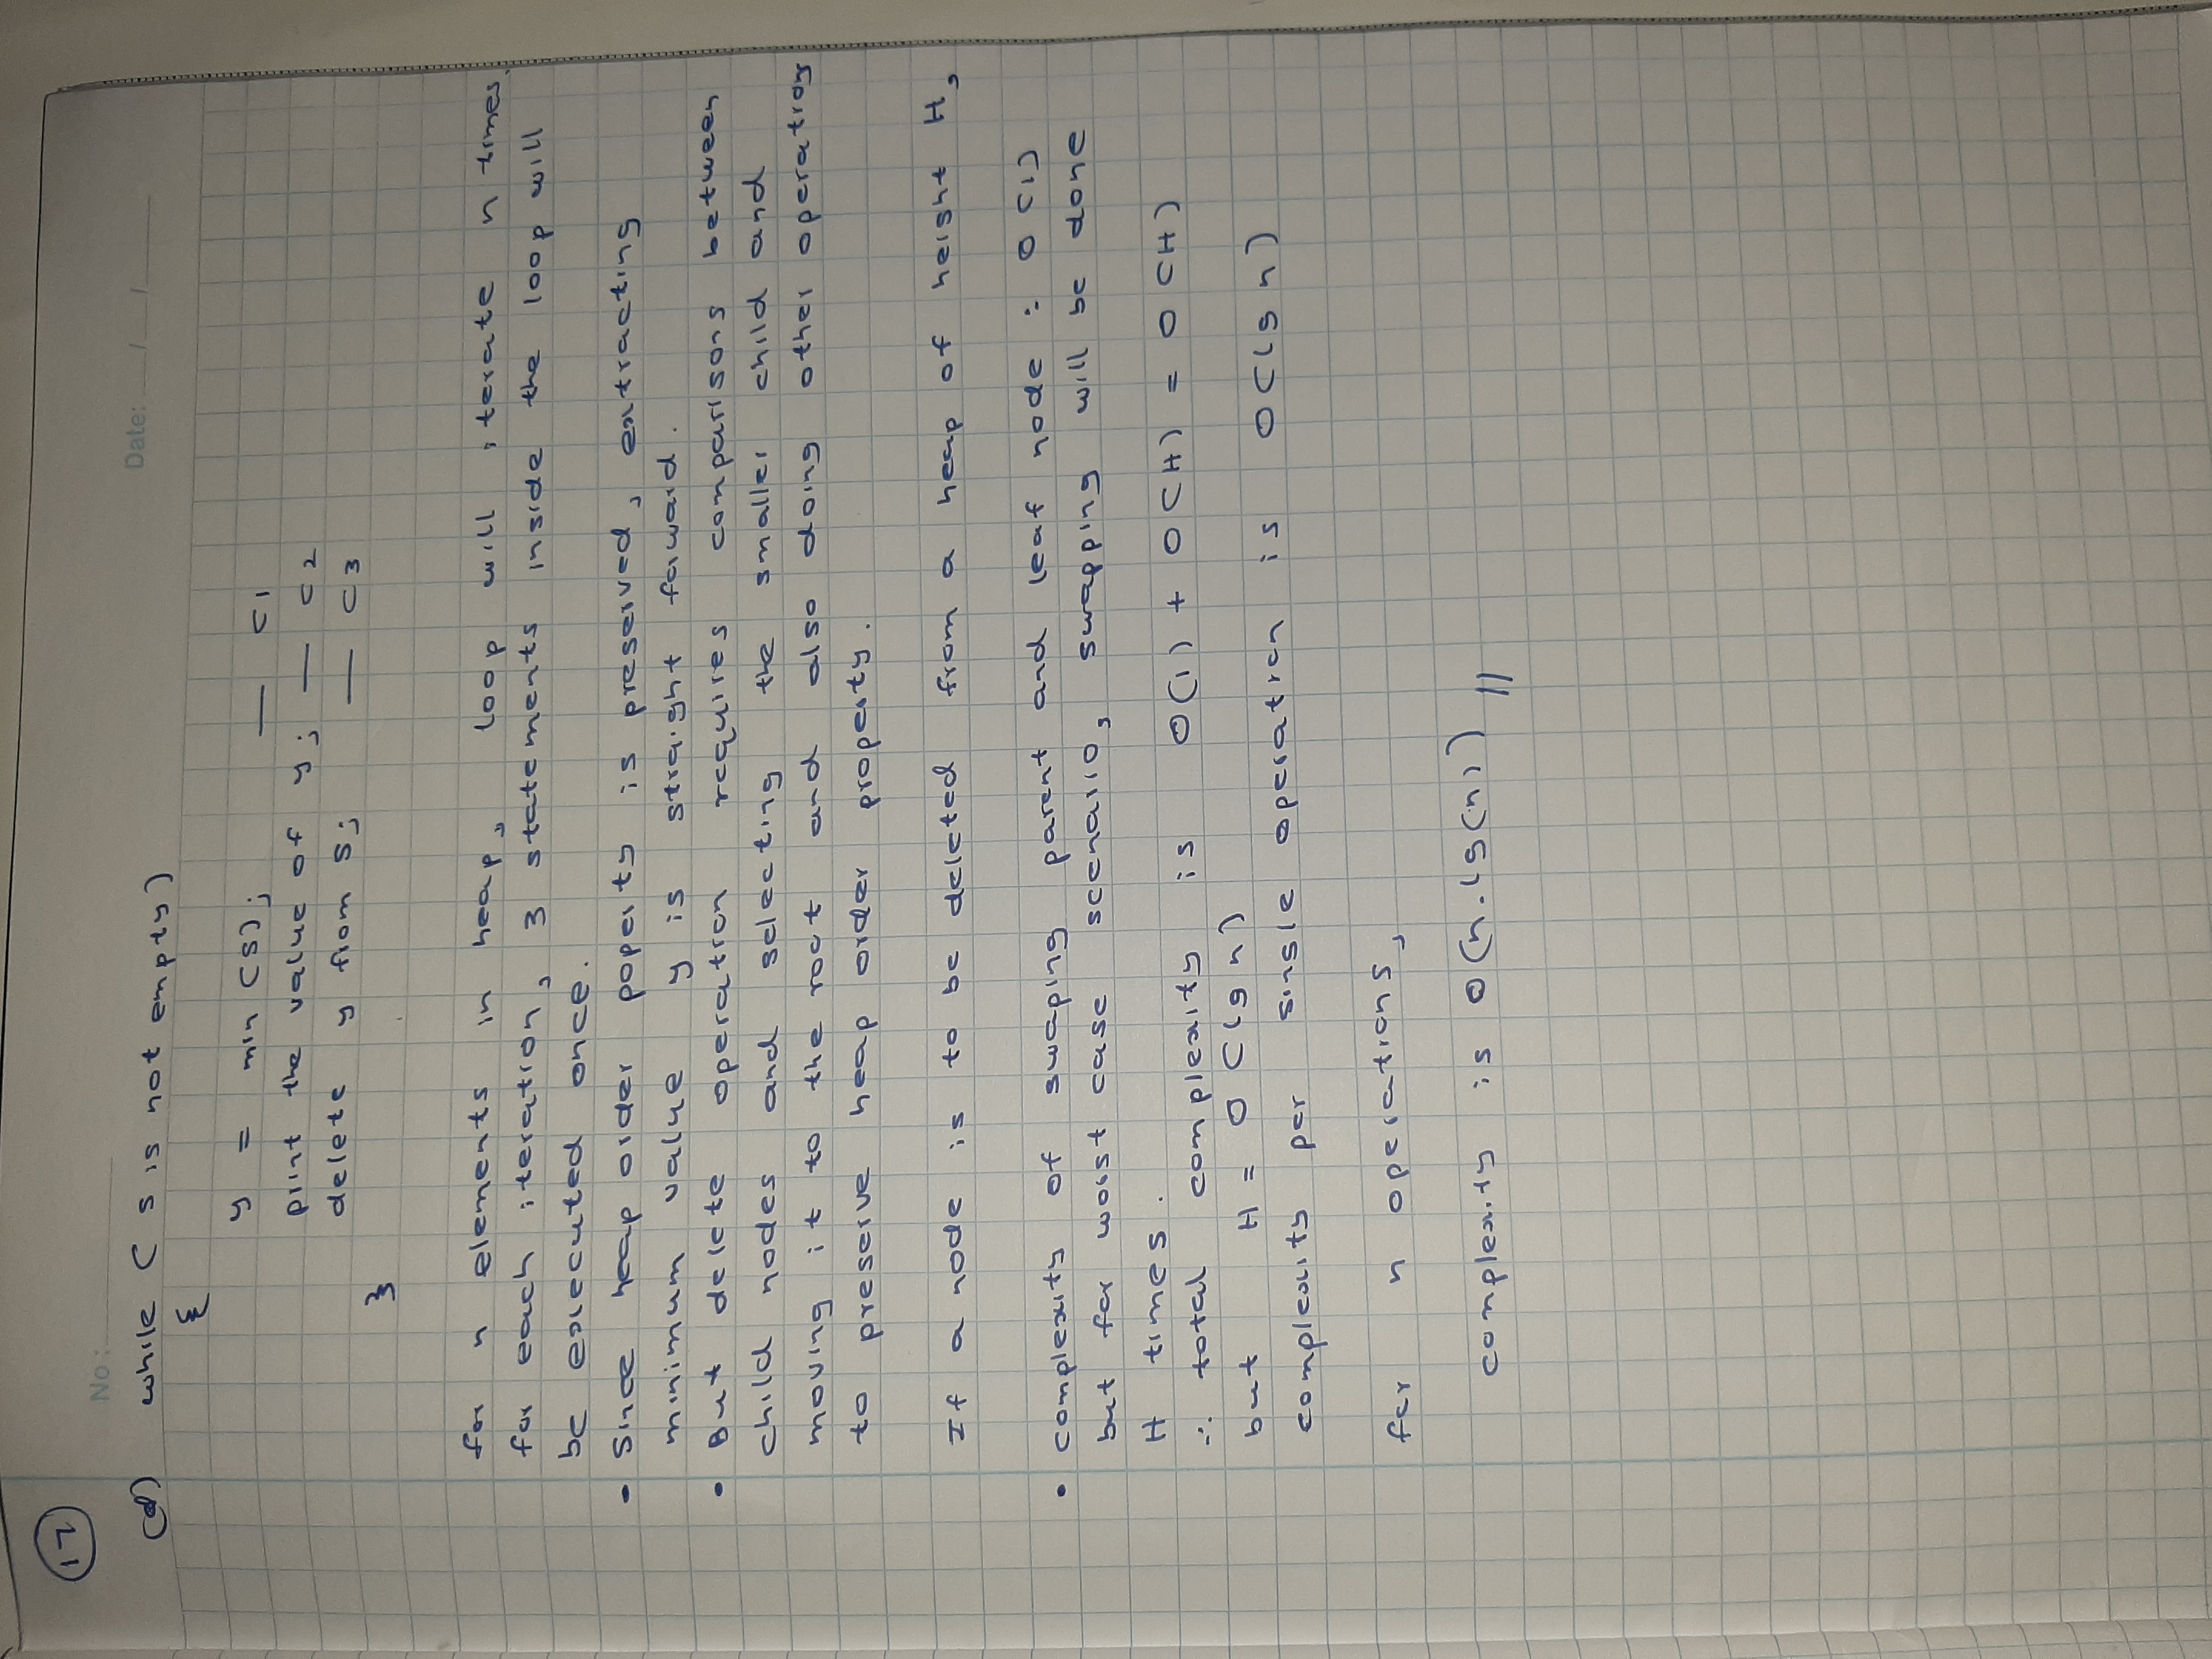 17
No :
Date: / /
(d) while ( S is not empty )
{
y = min (S); — C1
print the value of y; — C2
delete y from S; — C3
}
for n elements in heap, loop will iterate n times.
for each iteration, 3 statements inside the loop will
be executed once.
• Since heap order poperty is preserved, extracting
minimum value y is straight forward.
• But delete operation requires comparisons between
child nodes and selecting the smaller child and
moving it to the root and also doing other operations
to preserve heap order property.
If a node is to be deleted from a heap of height H,
• complexity of swaping parent and leaf node : O(1)
but for worst case scenario, swapping will be done
H times.
∴ total complexity is O(1) + O(H) = O(H)
but H = O(lg n)
complexity per single operation is O(lg n)
for n operations,
complexity is O(n.lg(n)) //